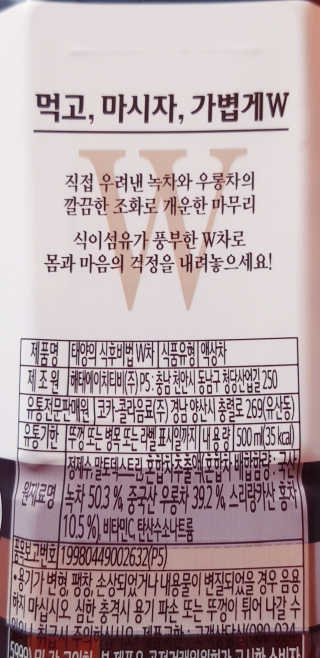 먹고, 마시자, 가볍게W
W
직접 우려낸 녹차와 우롱차의
깔끔한 조화로 개운한 마무리
식이섬유가 풍부한 W차로
몸과 마음의 걱정을 내려놓으세요!
제품명 태양의 식후비법 W차 식품유형 액상차
제조원 해태에이치티비(주) P5 : 충남 천안시 동남구 청당산업길 250
유통전문판매원 코카-콜라음료(주) 경남 양산시 충렬로 269(유산동)
유통기한 뚜껑 또는 병목 또는 라벨 표시일까지 내용량 500 ml(35 kcal)
원재료명 정제수, 말토덱스트린, 혼합차추출액(혼합차 배합함량 : 국산
녹차 50.3 %, 중국산 우롱차 39.2 %, 스리랑카산 홍차
10.5 %), 비타민C, 탄산수소나트륨
품목보고번호 19980449002632(P5)
•용기가 변형, 팽창, 손상되었거나 내용물이 변질되었을 경우 음용
하지 마십시오. 심한 충격시 용기 파손 또는 뚜껑이 튀어 나갈 수